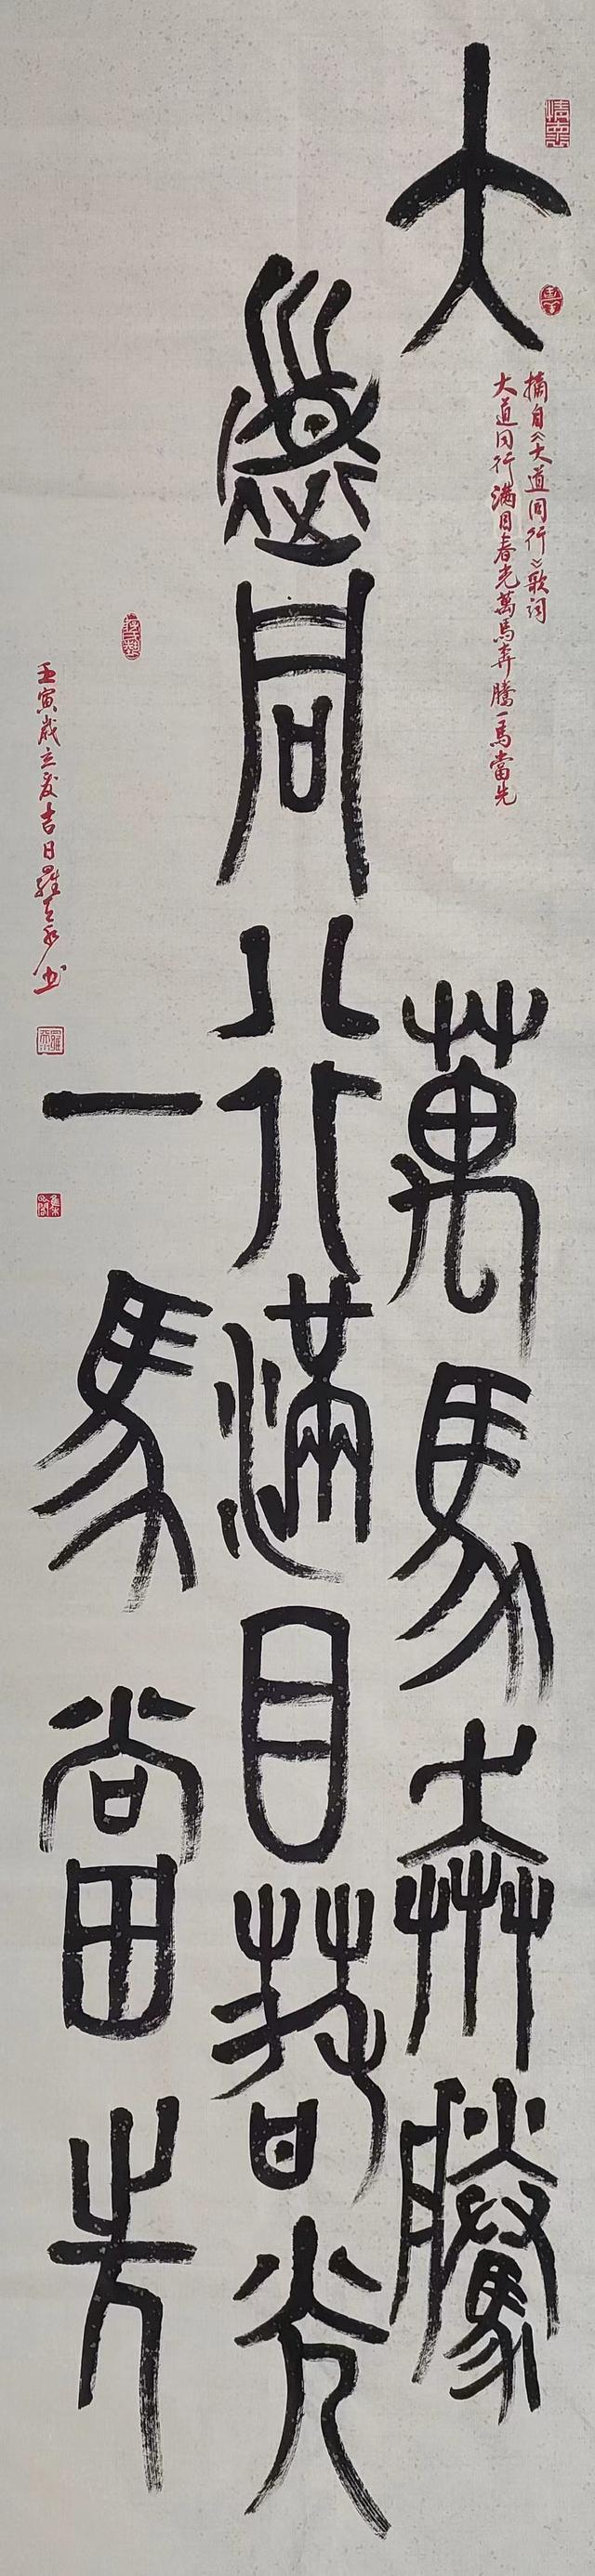 大
道同行滿目春光
萬馬奔騰
一馬當先
摘自《大道同行》歌词
大道同行满目春光萬馬奔騰一馬當先
壬寅歲立夏吉日羅